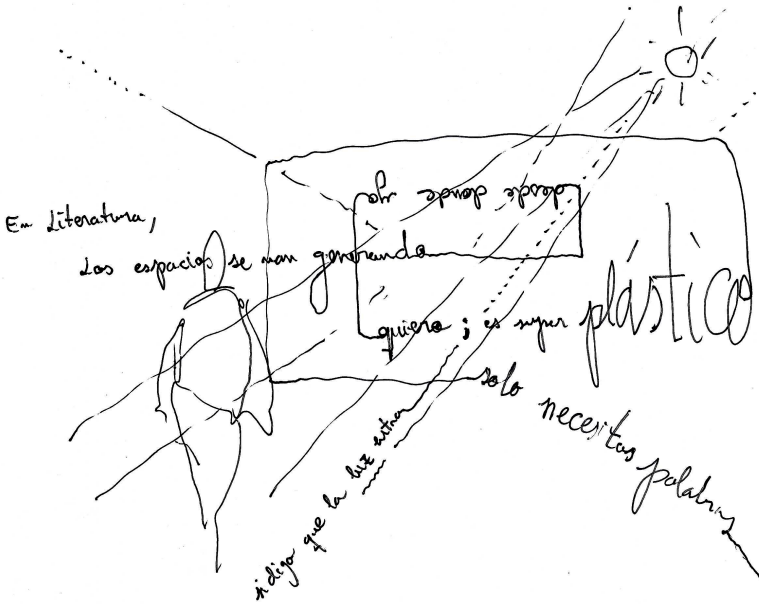 En Literatura,
Los espacios se van generando
desde donde yo
quiero ; es super plástico
solo necesitas palabras
si digo que la luz entra